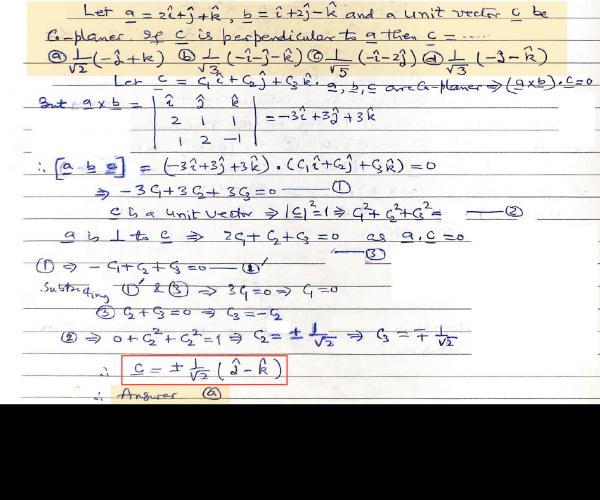 Let a = 2î+ĵ+k̂, b = î+2ĵ-k̂ and a unit vector c be
Co-planer. If c is perpendicular to a then c = ......
(a) 1/√2 (-ĵ+k) (b) 1/√3 (-î-ĵ-k̂) (c) 1/√5 (-î-2ĵ) (d) 1/√3 (-ĵ-k̂)
Let c = C₁î+C₂ĵ+C₃k̂. a, b, c are Co-planer ⇒ (a×b)·c=0
But a×b = | î ĵ k̂ |
| 2 1 1 | = -3î+3ĵ+3k̂
| 1 2 -1 |
∴ [a b c] = (-3î+3ĵ+3k̂)·(C₁î+C₂ĵ+C₃k̂) = 0
⇒ -3C₁+3C₂+3C₃=0 — (1)
c is a unit vector ⇒ |c|²=1 ⇒ C₁²+C₂²+C₃²= — (2)
a is ⊥ to c ⇒ 2C₁+C₂+C₃=0 as a.c=0
— (3)
(1) ⇒ -C₁+C₂+C₃=0 — (1)'
Subtracting (1)' & (3) ⇒ 3C₁=0 ⇒ C₁=0
(3) C₂+C₃=0 ⇒ C₃=-C₂
(2) ⇒ 0+C₂²+C₂²=1 ⇒ C₂=±1/√2 ⇒ C₃=∓1/√2
∴ c = ±1/√2 (ĵ-k̂)
∴ Answer (a)